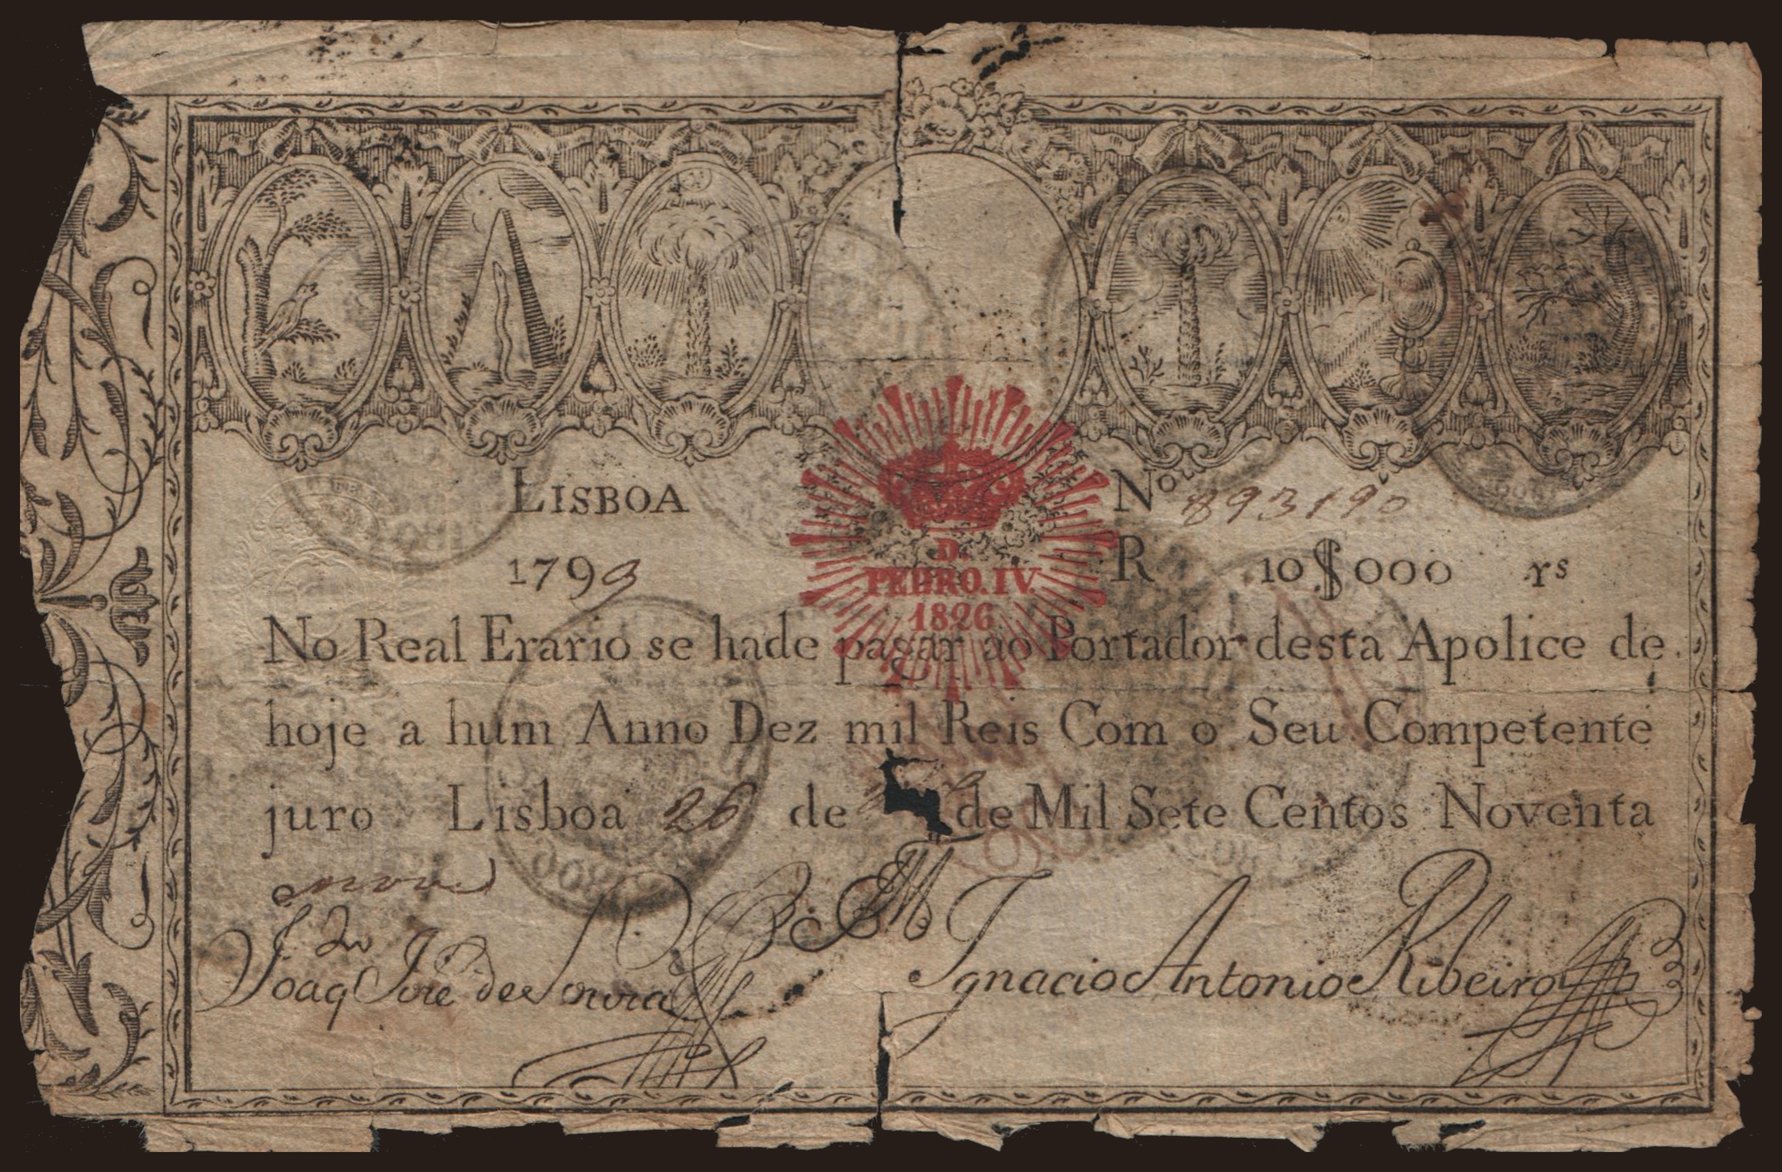 LISBOA
Nº 893190
1799
R 10$000 rs
D.
PEDRO.IV
1826
No Real Erario se hade pagar ao Portador desta Apolice de
hoje a hum Anno Dez mil Reis Com o Seu Competente
juro Lisboa 26 de de Mil Sete Centos Noventa
nove
Joaq José de Souza
Ignacio Antonio Ribeiro